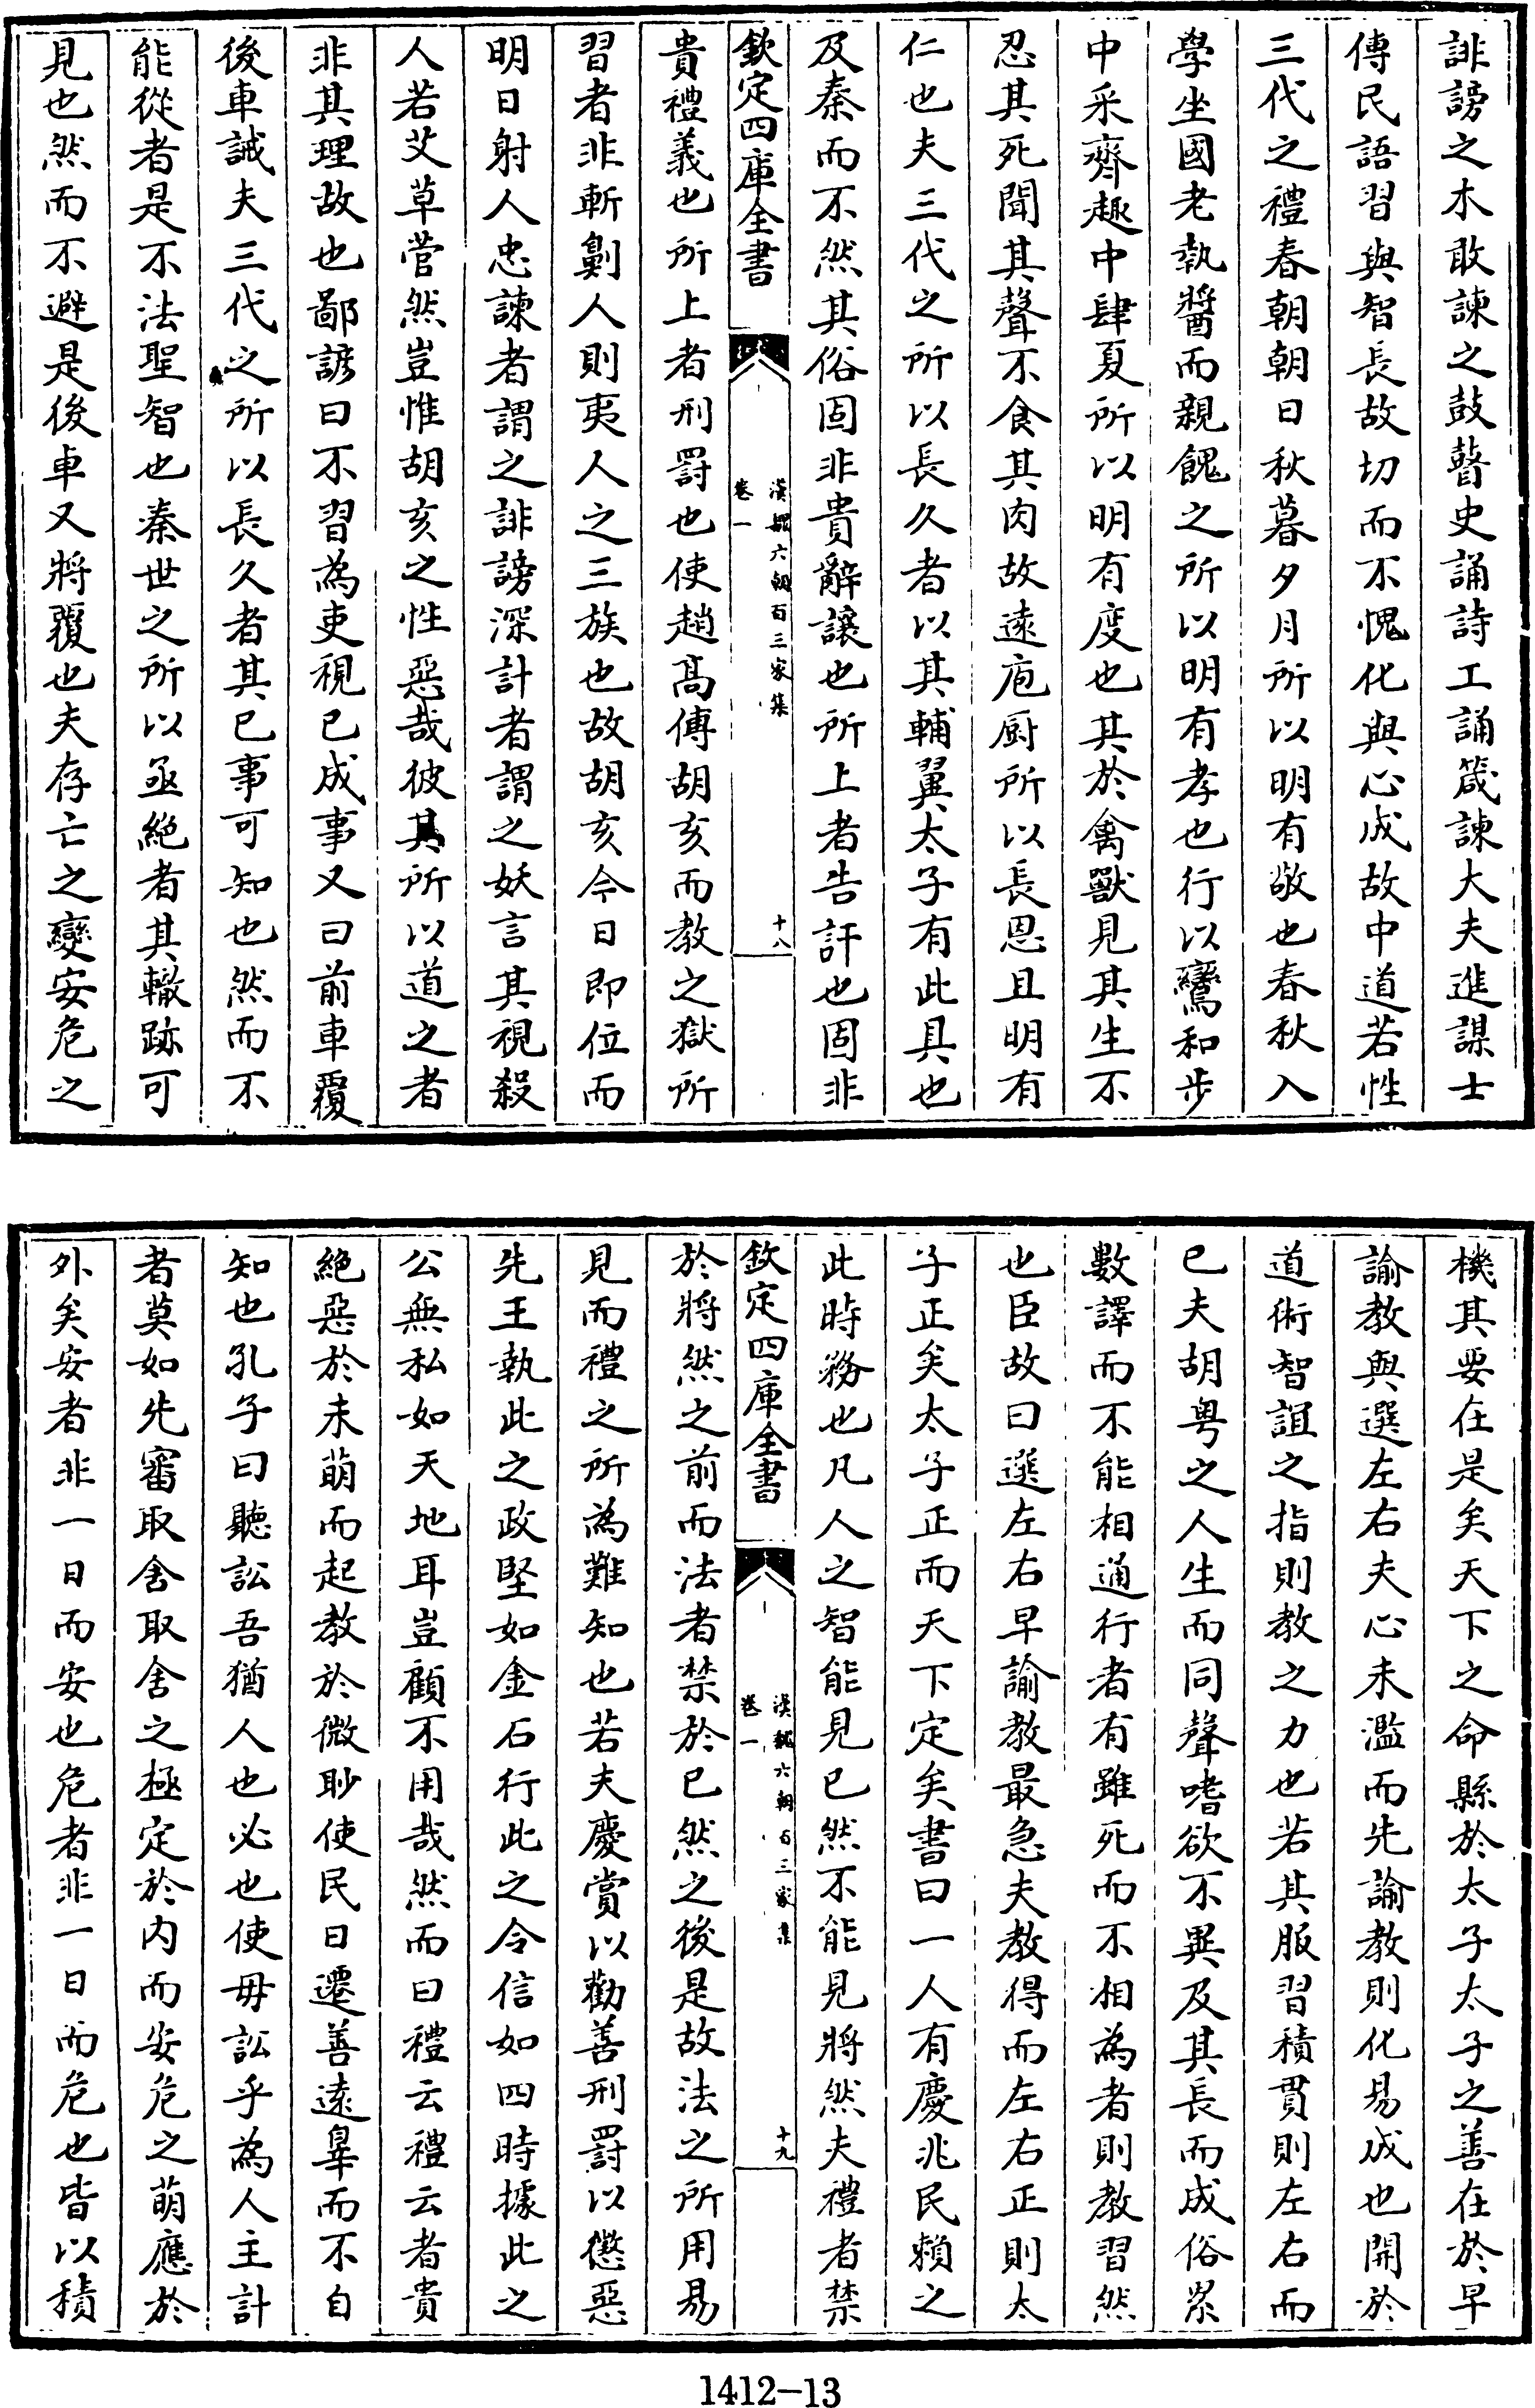 誹謗之木敢諫之鼓瞽史誦詩工誦箴諫大夫進謀士
傳民語習與智長故切而不愧化與心成故中道若性
三代之禮春朝朝日秋暮夕月所以明有敬也春秋入
學坐國老執醬而親餽之所以明有孝也行以鸞和步
中采齊趣中肆夏所以明有度也其於禽獸見其生不
忍其死聞其聲不食其肉故遠庖厨所以長恩且明有
仁也夫三代之所以長久者以其輔翼太子有此具也
及秦而不然其俗固非貴辭讓也所上者告訐也固非
欽定四庫全書
漢魏六朝百三家集
卷一
十八
貴禮義也所上者刑罰也使趙髙傅胡亥而教之獄所
習者非斬劓人則夷人之三族也故胡亥今日即位而
明日射人忠諫者謂之誹謗深計者謂之妖言其視殺
人若艾草菅然豈惟胡亥之性惡哉彼其所以道之者
非其理故也鄙諺曰不習為吏視已成事又曰前車覆
後車誡夫三代之所以長久者其已事可知也然而不
能從者是不法聖智也秦世之所以亟絶者其轍跡可
見也然而不避是後車又將覆也夫存亡之變安危之
機其要在是矣天下之命縣於太子太子之善在於早
諭教與選左右夫心未濫而先諭教則化易成也開於
道術智誼之指則教之力也若其服習積貫則左右而
已夫胡粤之人生而同聲嗜欲不異及其長而成俗累
數譯而不能相通行者有雖死而不相為者則教習然
也臣故曰選左右早諭教最急夫教得而左右正則太
子正矣太子正而天下定矣書曰一人有慶兆民賴之
此時務也凡人之智能見已然不能見將然夫禮者禁
欽定四庫全書
漢魏六朝百三家集
卷一
十九
於將然之前而法者禁於已然之後是故法之所用易
見而禮之所為難知也若夫慶賞以勸善刑罰以懲惡
先王執此之政堅如金石行此之令信如四時據此之
公無私如天地耳豈顧不用哉然而曰禮云禮云者貴
絶惡於未萌而起教於微眇使民日遷善遠辠而不自
知也孔子曰聽訟吾猶人也必也使毋訟乎為人主計
者莫如先審取舍取舍之極定於内而安危之萌應於
外矣安者非一日而安也危者非一日而危也皆以積
1412-13